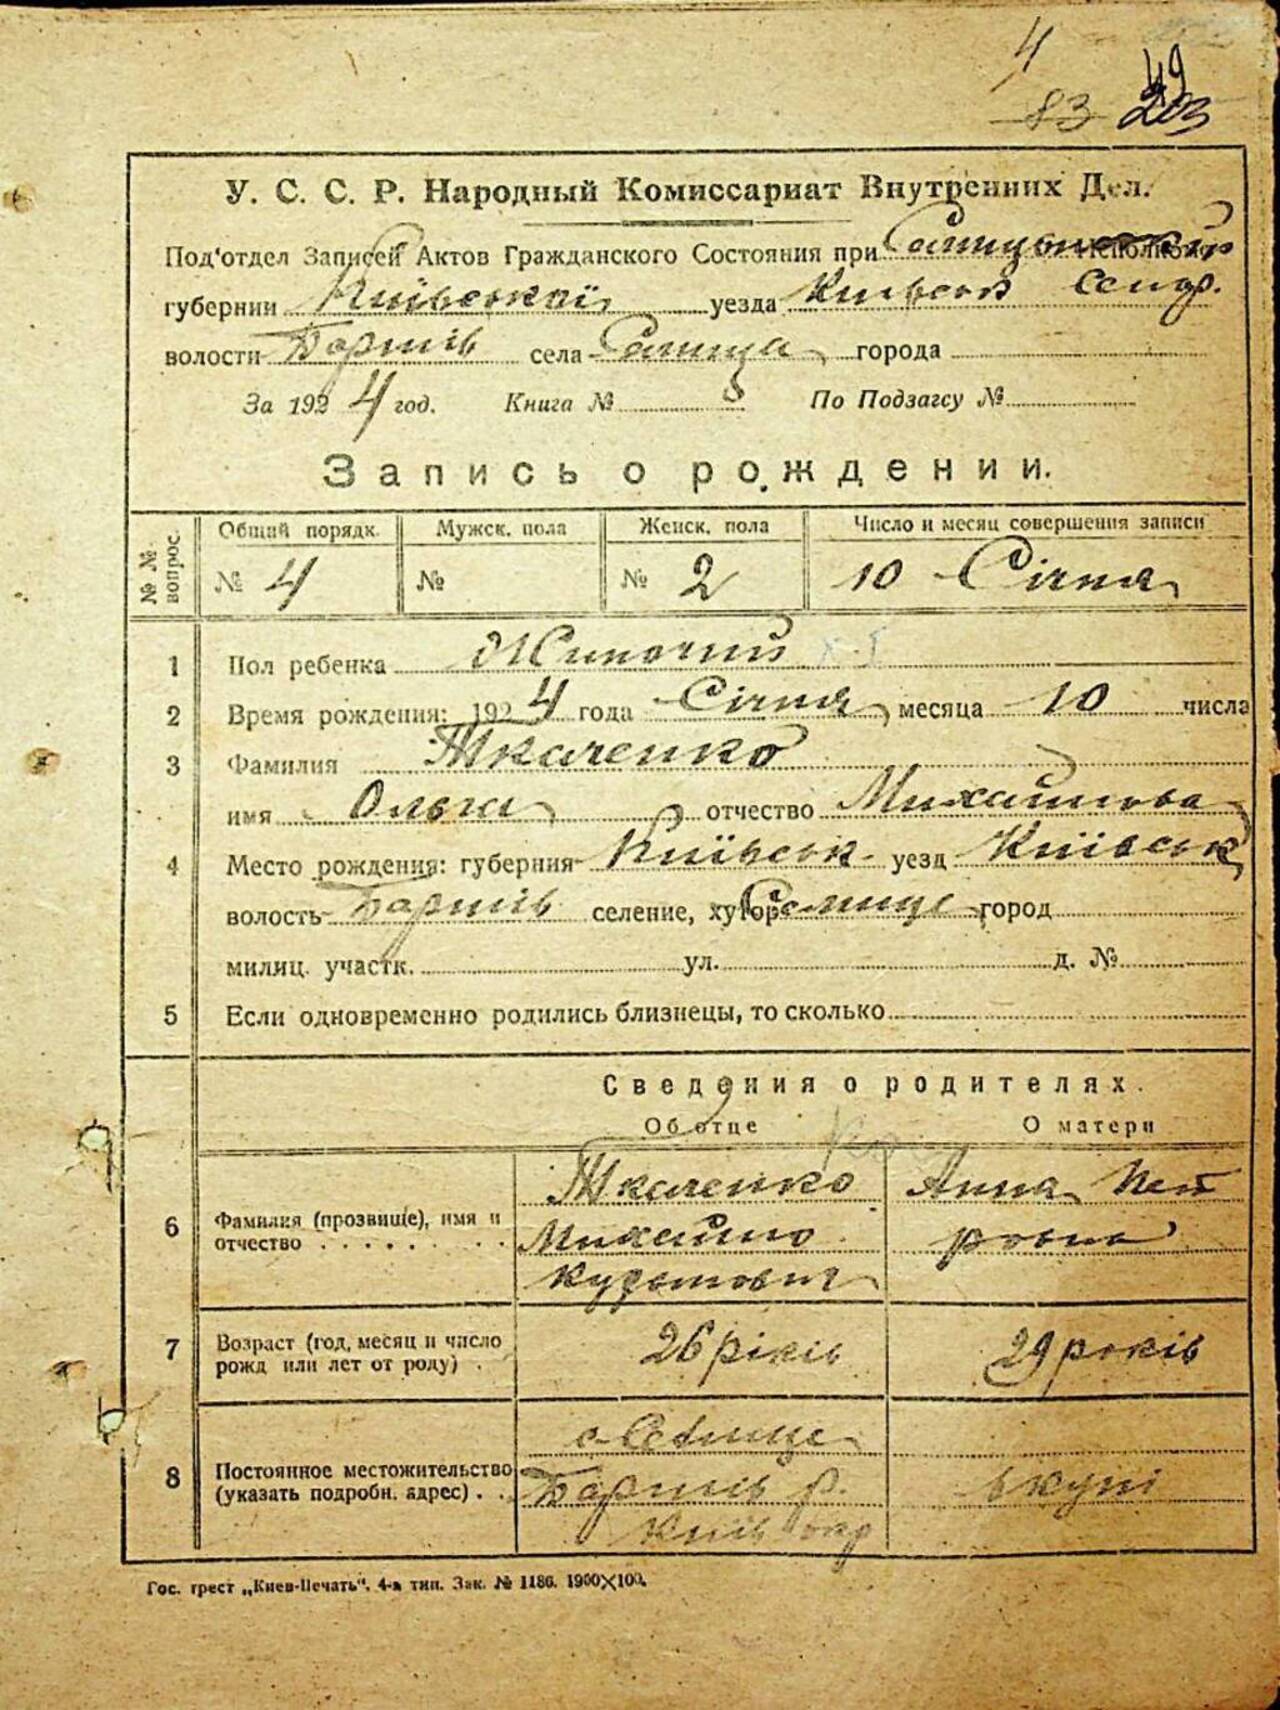 4
83 203
49
У. С. С. Р. Народный Комиссариат Внутренних Дел.
Под'отдел Записей Актов Гражданского Состояния при
губернии Київської уезда Київськ
волости Баришів села Селище города
За 1924 год. Книга № По Подзагсу №
Запись о рождении.
№ № вопрос. Общий порядк. Мужск. пола Женск. пола Число и месяц совершения записи
№ 4 № № 2 10 Січня
1 Пол ребенка Жиночий
2 Время рождения: 1924 года Січня месяца 10 числа
3 Фамилия Ткаченко
имя Ольга отчество Михайлова
4 Место рождения: губерния Київськ уезд Київськ
волость Баришів селение, хутор Селище город
милиц. участк. ул. д. №
5 Если одновременно родились близнецы, то сколько
Сведения о родителях.
Об отце О матери
6 Фамилия (прозвище), имя и отчество Ткаченко Анна Пет
Михайло ровна
Кузьмович
7 Возраст (год, месяц и число рожд или лет от роду) 26 років 29 років
8 Постоянное местожительство (указать подробн. адрес) с. Селище
Баришів р. вкупі
Київ окр
Гос. трест „Киев-Печать“. 4-я тип. Зак. № 1186. 1900×100.